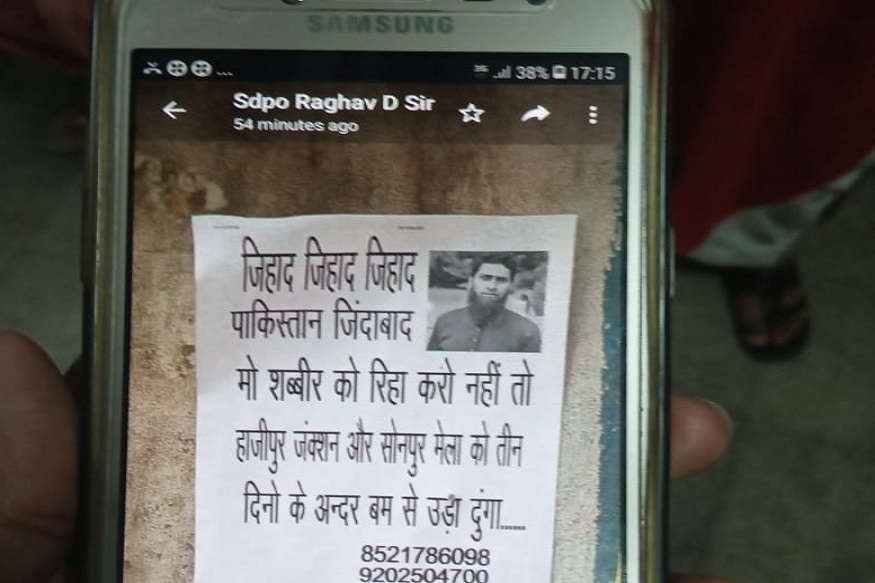 SAMSUNG
38% 17:15
Sdpo Raghav D Sir
54 minutes ago
जिहाद जिहाद जिहाद
पाकिस्तान जिंदाबाद
मो शब्बीर को रिहा करो नहीं तो
हाजीपुर जंक्शन और सोनपुर मेला को तीन
दिनो के अन्दर बम से उड़ा दुंगा......
8521786098
9202504700